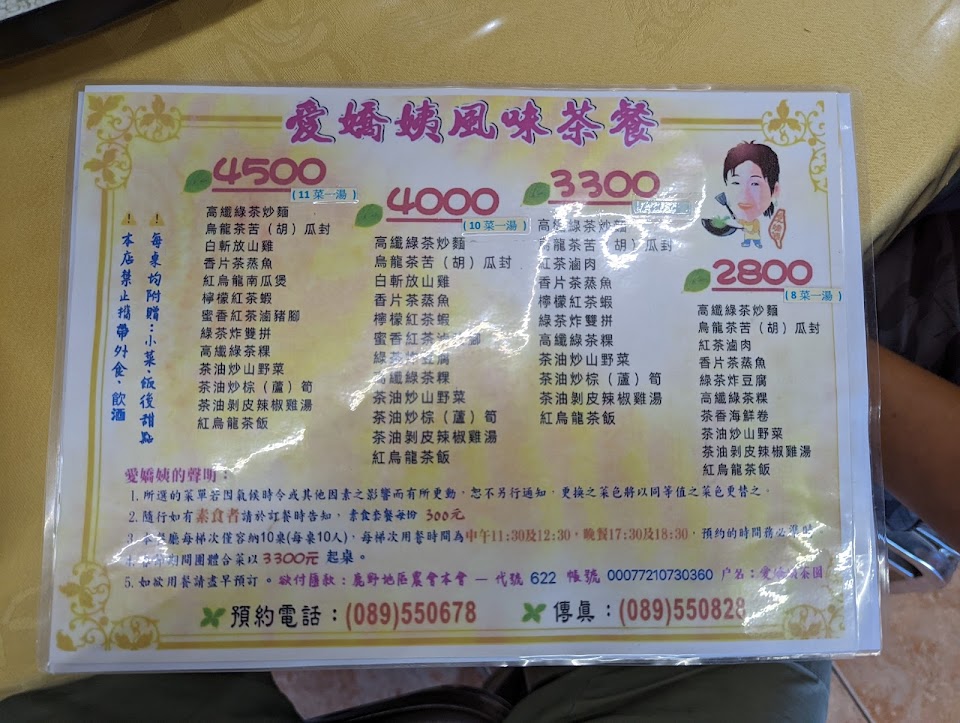 愛嬌姨風味茶餐
4500
(11 菜一湯)
高纖綠茶炒麵
烏龍茶苦(胡)瓜封
白斬放山雞
香片茶蒸魚
紅烏龍南瓜煲
檸檬紅茶蝦
蜜香紅茶滷豬腳
綠茶炸雙拼
高纖綠茶粿
茶油炒山野菜
茶油炒棕(蘆)筍
茶油剝皮辣椒雞湯
紅烏龍茶飯
4000
(10 菜一湯)
高纖綠茶炒麵
烏龍茶苦(胡)瓜封
白斬放山雞
香片茶蒸魚
檸檬紅茶蝦
蜜香紅茶滷豬腳
綠茶炸豆腐
高纖綠茶粿
茶油炒山野菜
茶油炒棕(蘆)筍
茶油剝皮辣椒雞湯
紅烏龍茶飯
3300
高纖綠茶炒麵
烏龍茶苦(胡)瓜封
紅茶滷肉
香片茶蒸魚
檸檬紅茶蝦
綠茶炸雙拼
高纖綠茶粿
茶油炒山野菜
茶油炒棕(蘆)筍
茶油剝皮辣椒雞湯
紅烏龍茶飯
2800
(8 菜一湯)
高纖綠茶炒麵
烏龍茶苦(胡)瓜封
紅茶滷肉
香片茶蒸魚
綠茶炸豆腐
高纖綠茶粿
茶香海鮮卷
茶油炒山野菜
茶油剝皮辣椒雞湯
紅烏龍茶飯
每桌均附贈:小菜.飯後甜點
本店禁止攜帶外食.飲酒
愛嬌姨的聲明:
1. 所選的菜單若因氣候時令或其他因素之影響而有所更動,恕不另行通知,更換之菜色將以同等值之菜色更替之。
2. 隨行如有素食者請於訂餐時告知,素食套餐每份 300元
3. 本餐廳每梯次僅容納10桌(每桌10人),每梯次用餐時間為中午11:30及12:30,晚餐17:30及18:30,預約的時間務必準時
4. 期間團體合菜以3300元 起桌。
5. 如欲用餐請盡早預訂。欲付匯款:鹿野地區農會本會 — 代號 622 帳號 00077210730360 戶名:愛嬌姨茶園
預約電話:(089)550678
傳真:(089)550828